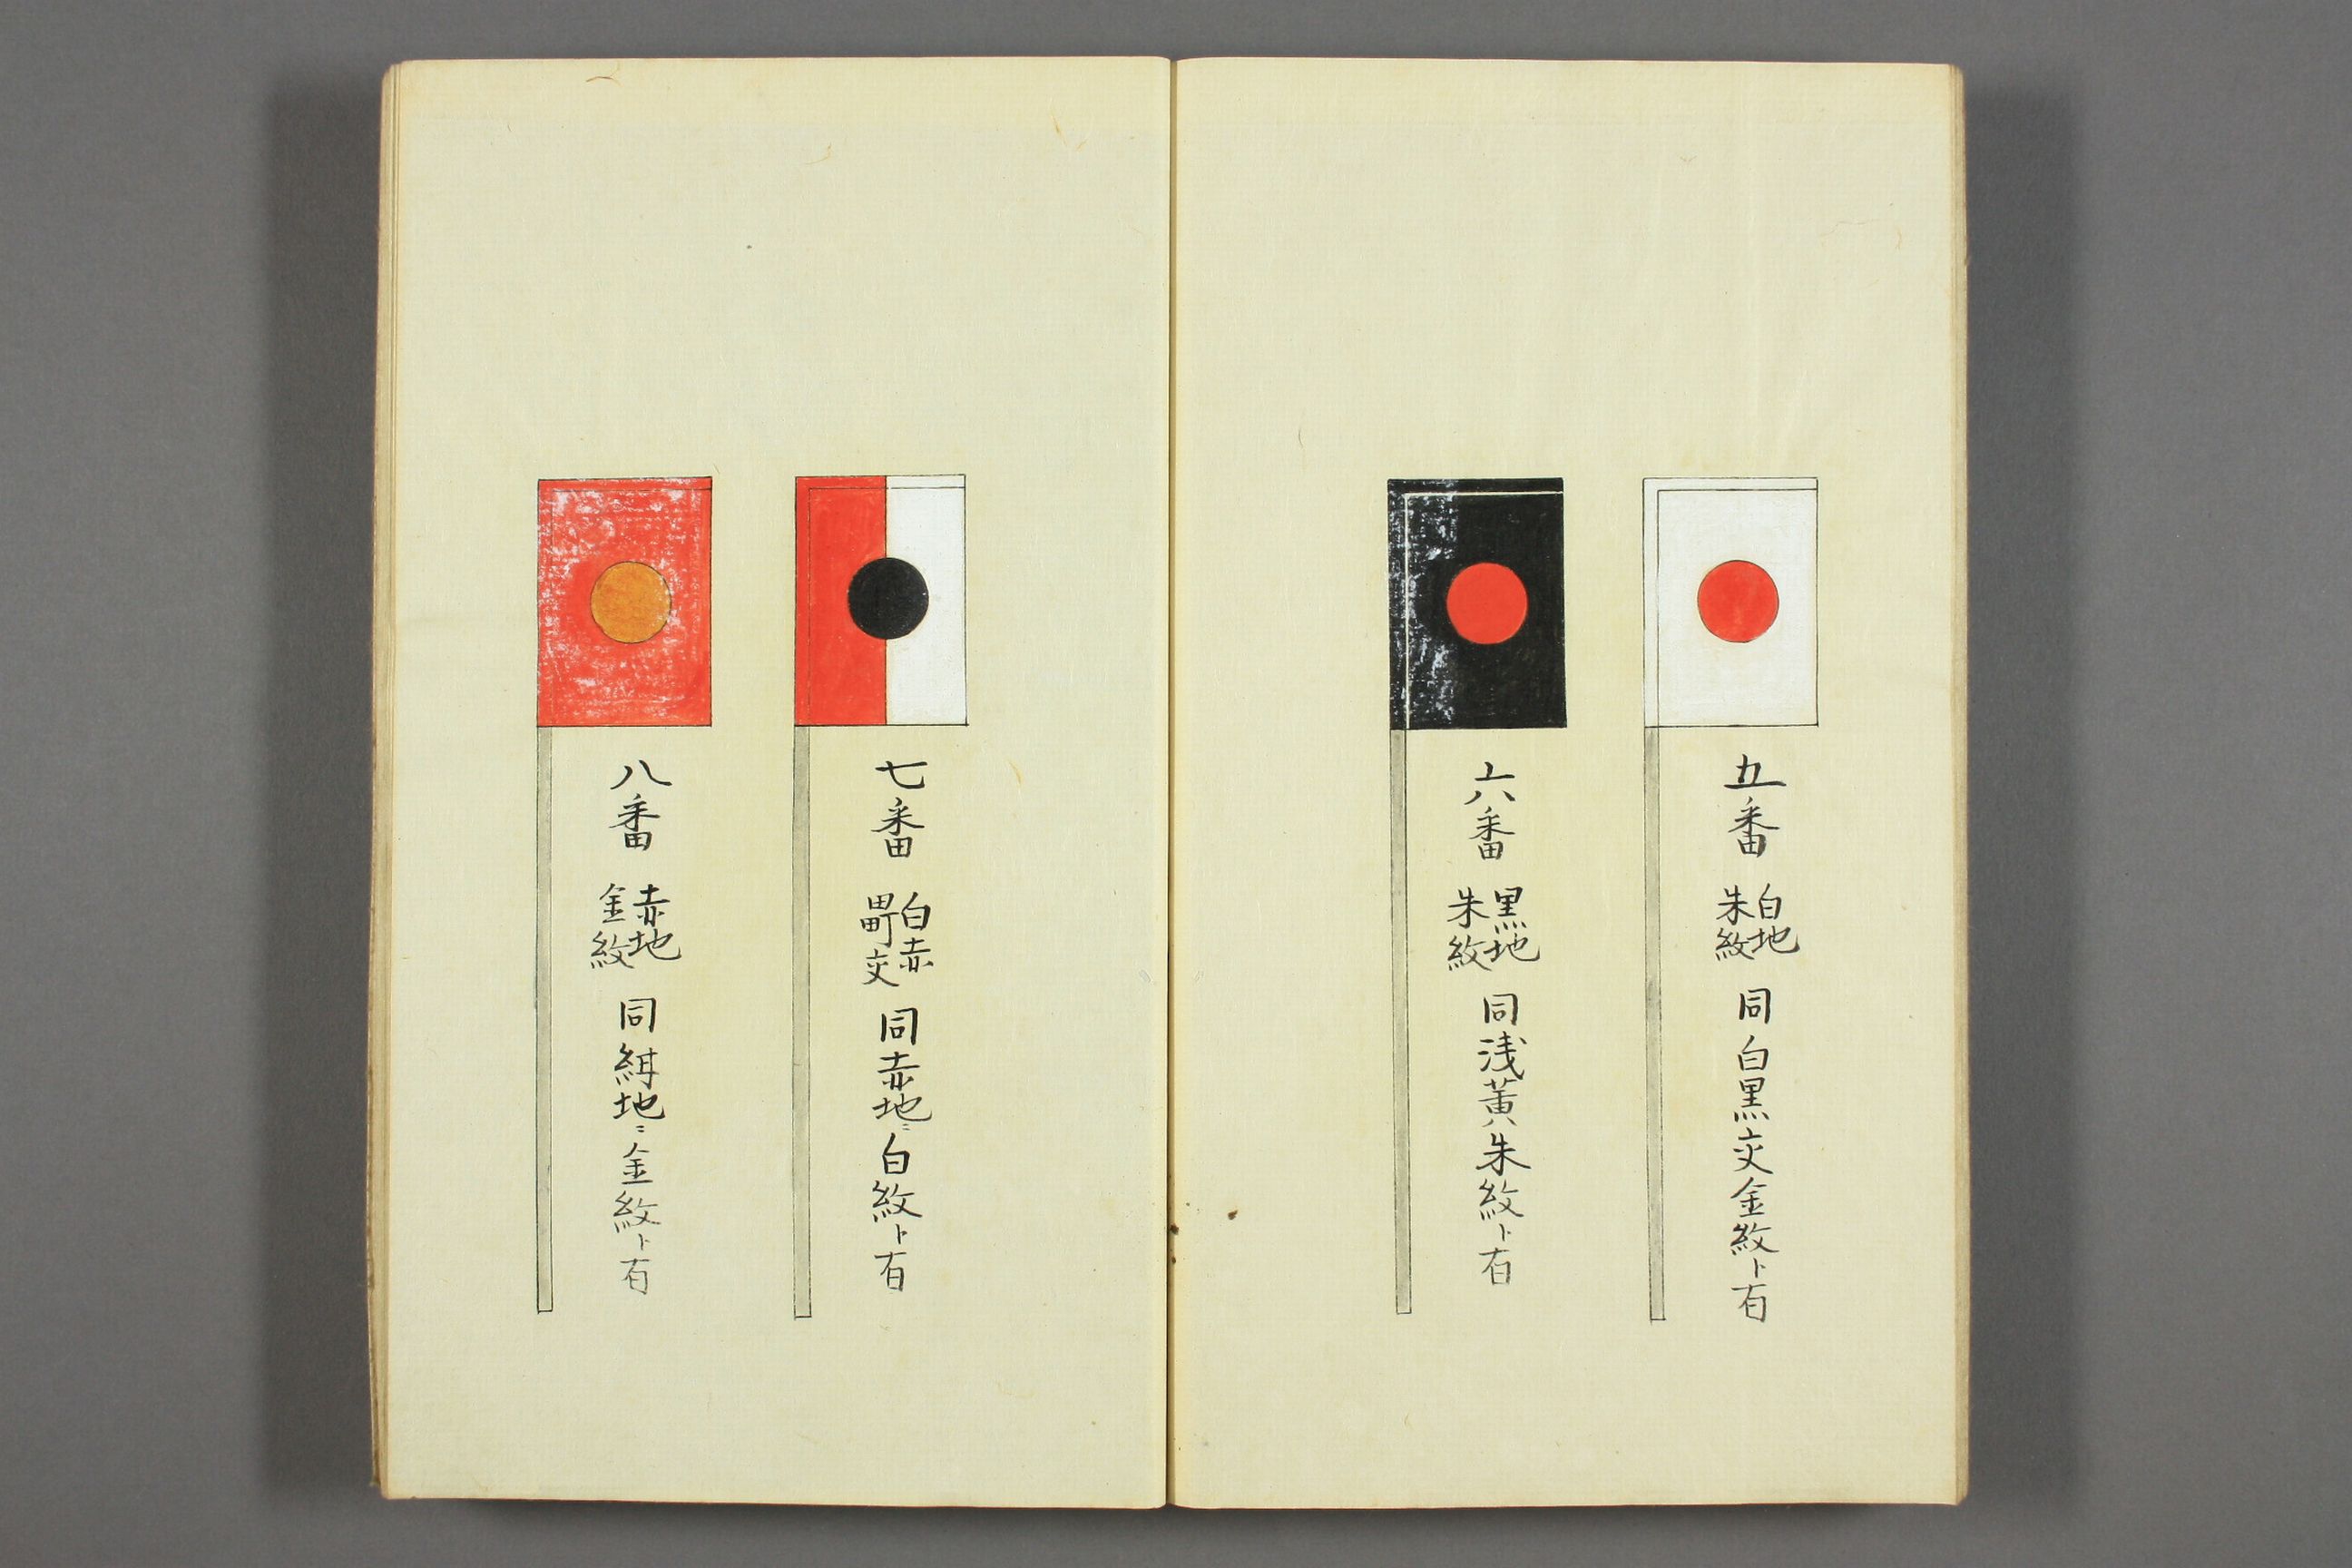 五番 白地 朱紋 同白黒交金紋ト有
六番 黒地 朱紋 同浅黄朱紋ト有
七番 白赤 交 同赤地ニ白紋ト有
八番 赤地 金紋 同緋地ニ金紋ト有